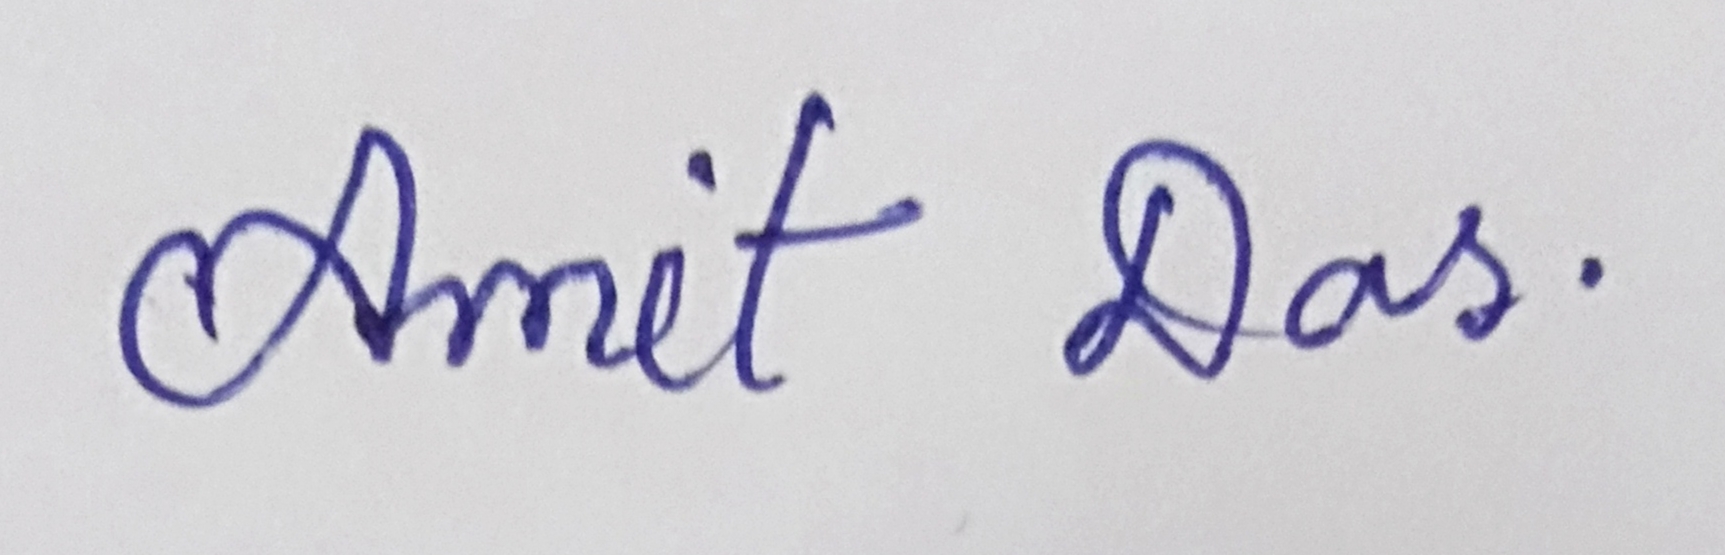 Amit Das.